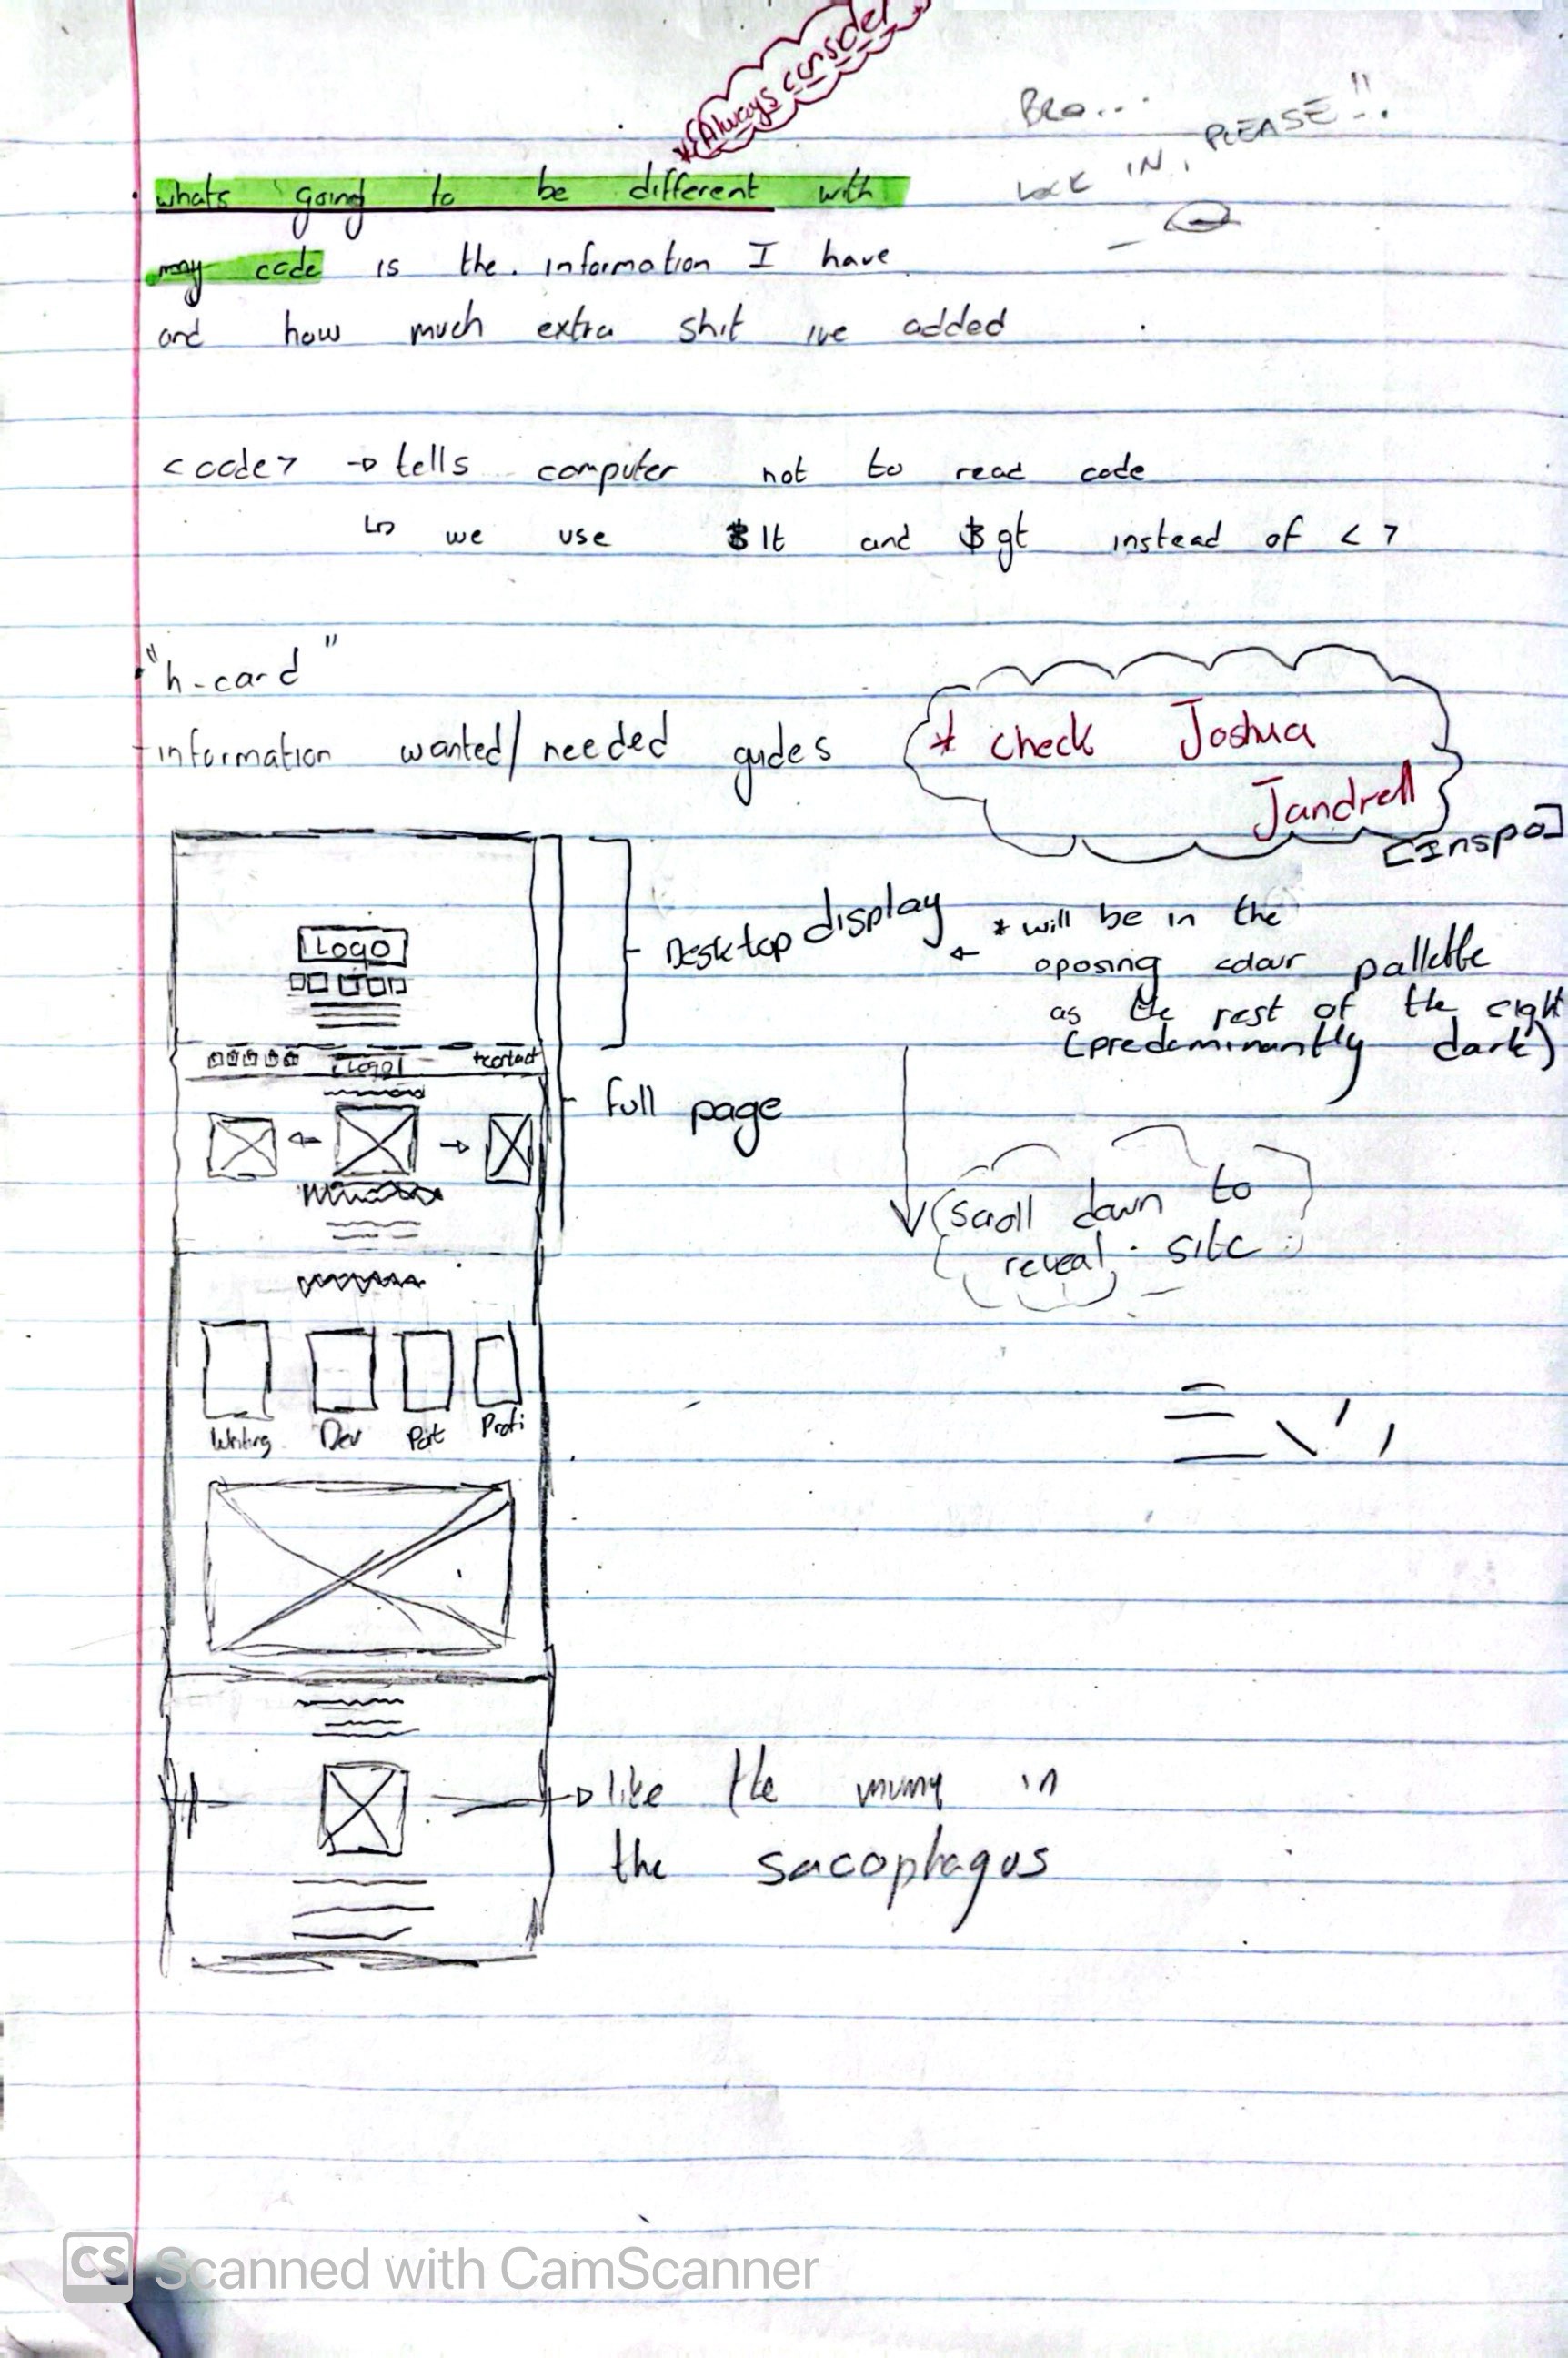 *(Always consider
Bro...
Lock IN, PLEASE!!.
whats going to be different with
my code is the. information I have
and how much extra shit ive added
<code> → tells computer not to read code
↳ we use $lt and $gt instead of < >
"h-card"
-information wanted/needed
* check Joshua
Jandrell
[Inspo]
Logo
Desktop display ← * will be in the
oposing colour
as the rest of the
(predominantly dark)
Logo
+contact
full page
(scroll down to
reveal site
Writing Dev Port Profi
like the mumy in
the sacophagus
CS Scanned with CamScanner